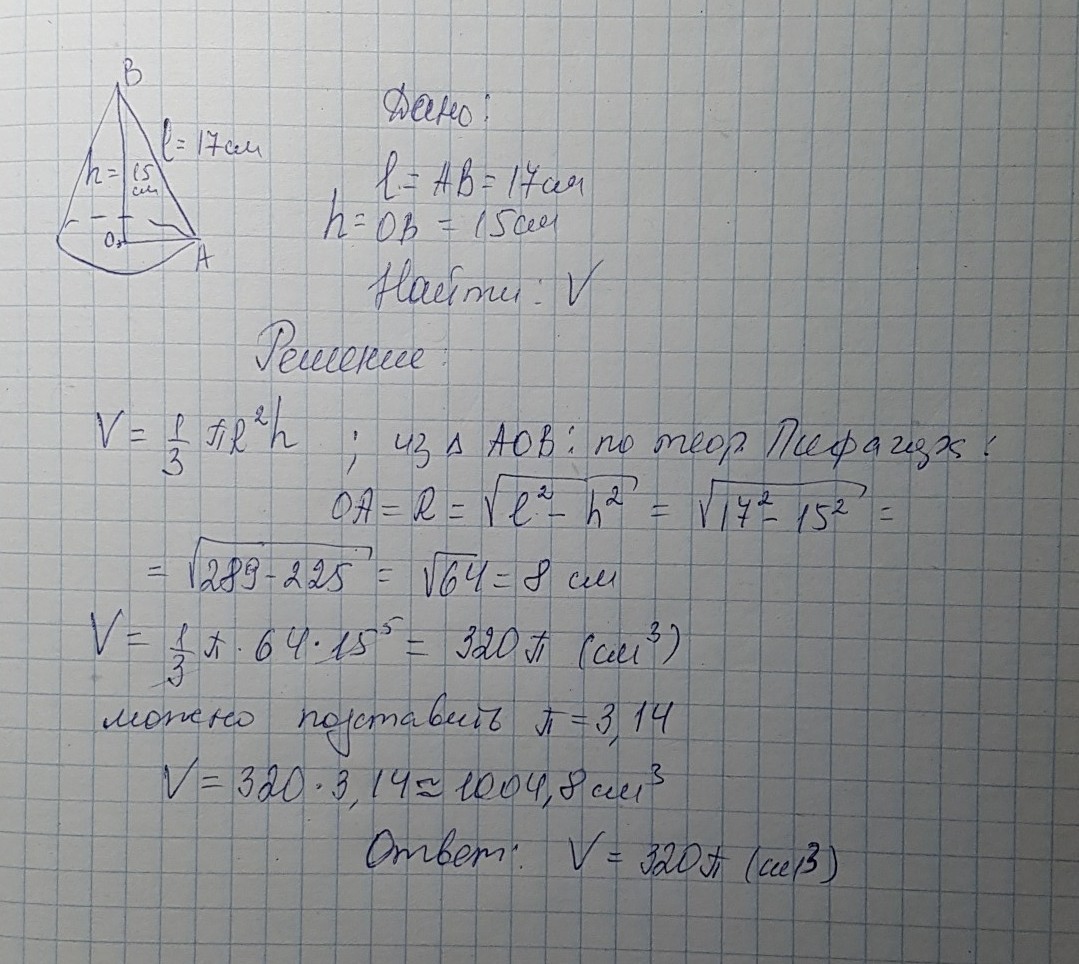 B
l = 17см
h = 15 см
O
A
Дано:
l = AB = 17см
h = OB = 15см
Найти: V
Решение:
V = 1/3 πR²h ; из Δ AOB: по теор. Пифагора:
OA = R = √(l² - h²) = √(17² - 15²) =
= √(289 - 225) = √64 = 8 см
V = 1/3 π · 64 · 15⁵ = 320π (см³)
можно подставить π = 3,14
V = 320 · 3,14 ≈ 1004,8 см³
Ответ: V = 320π (см³)